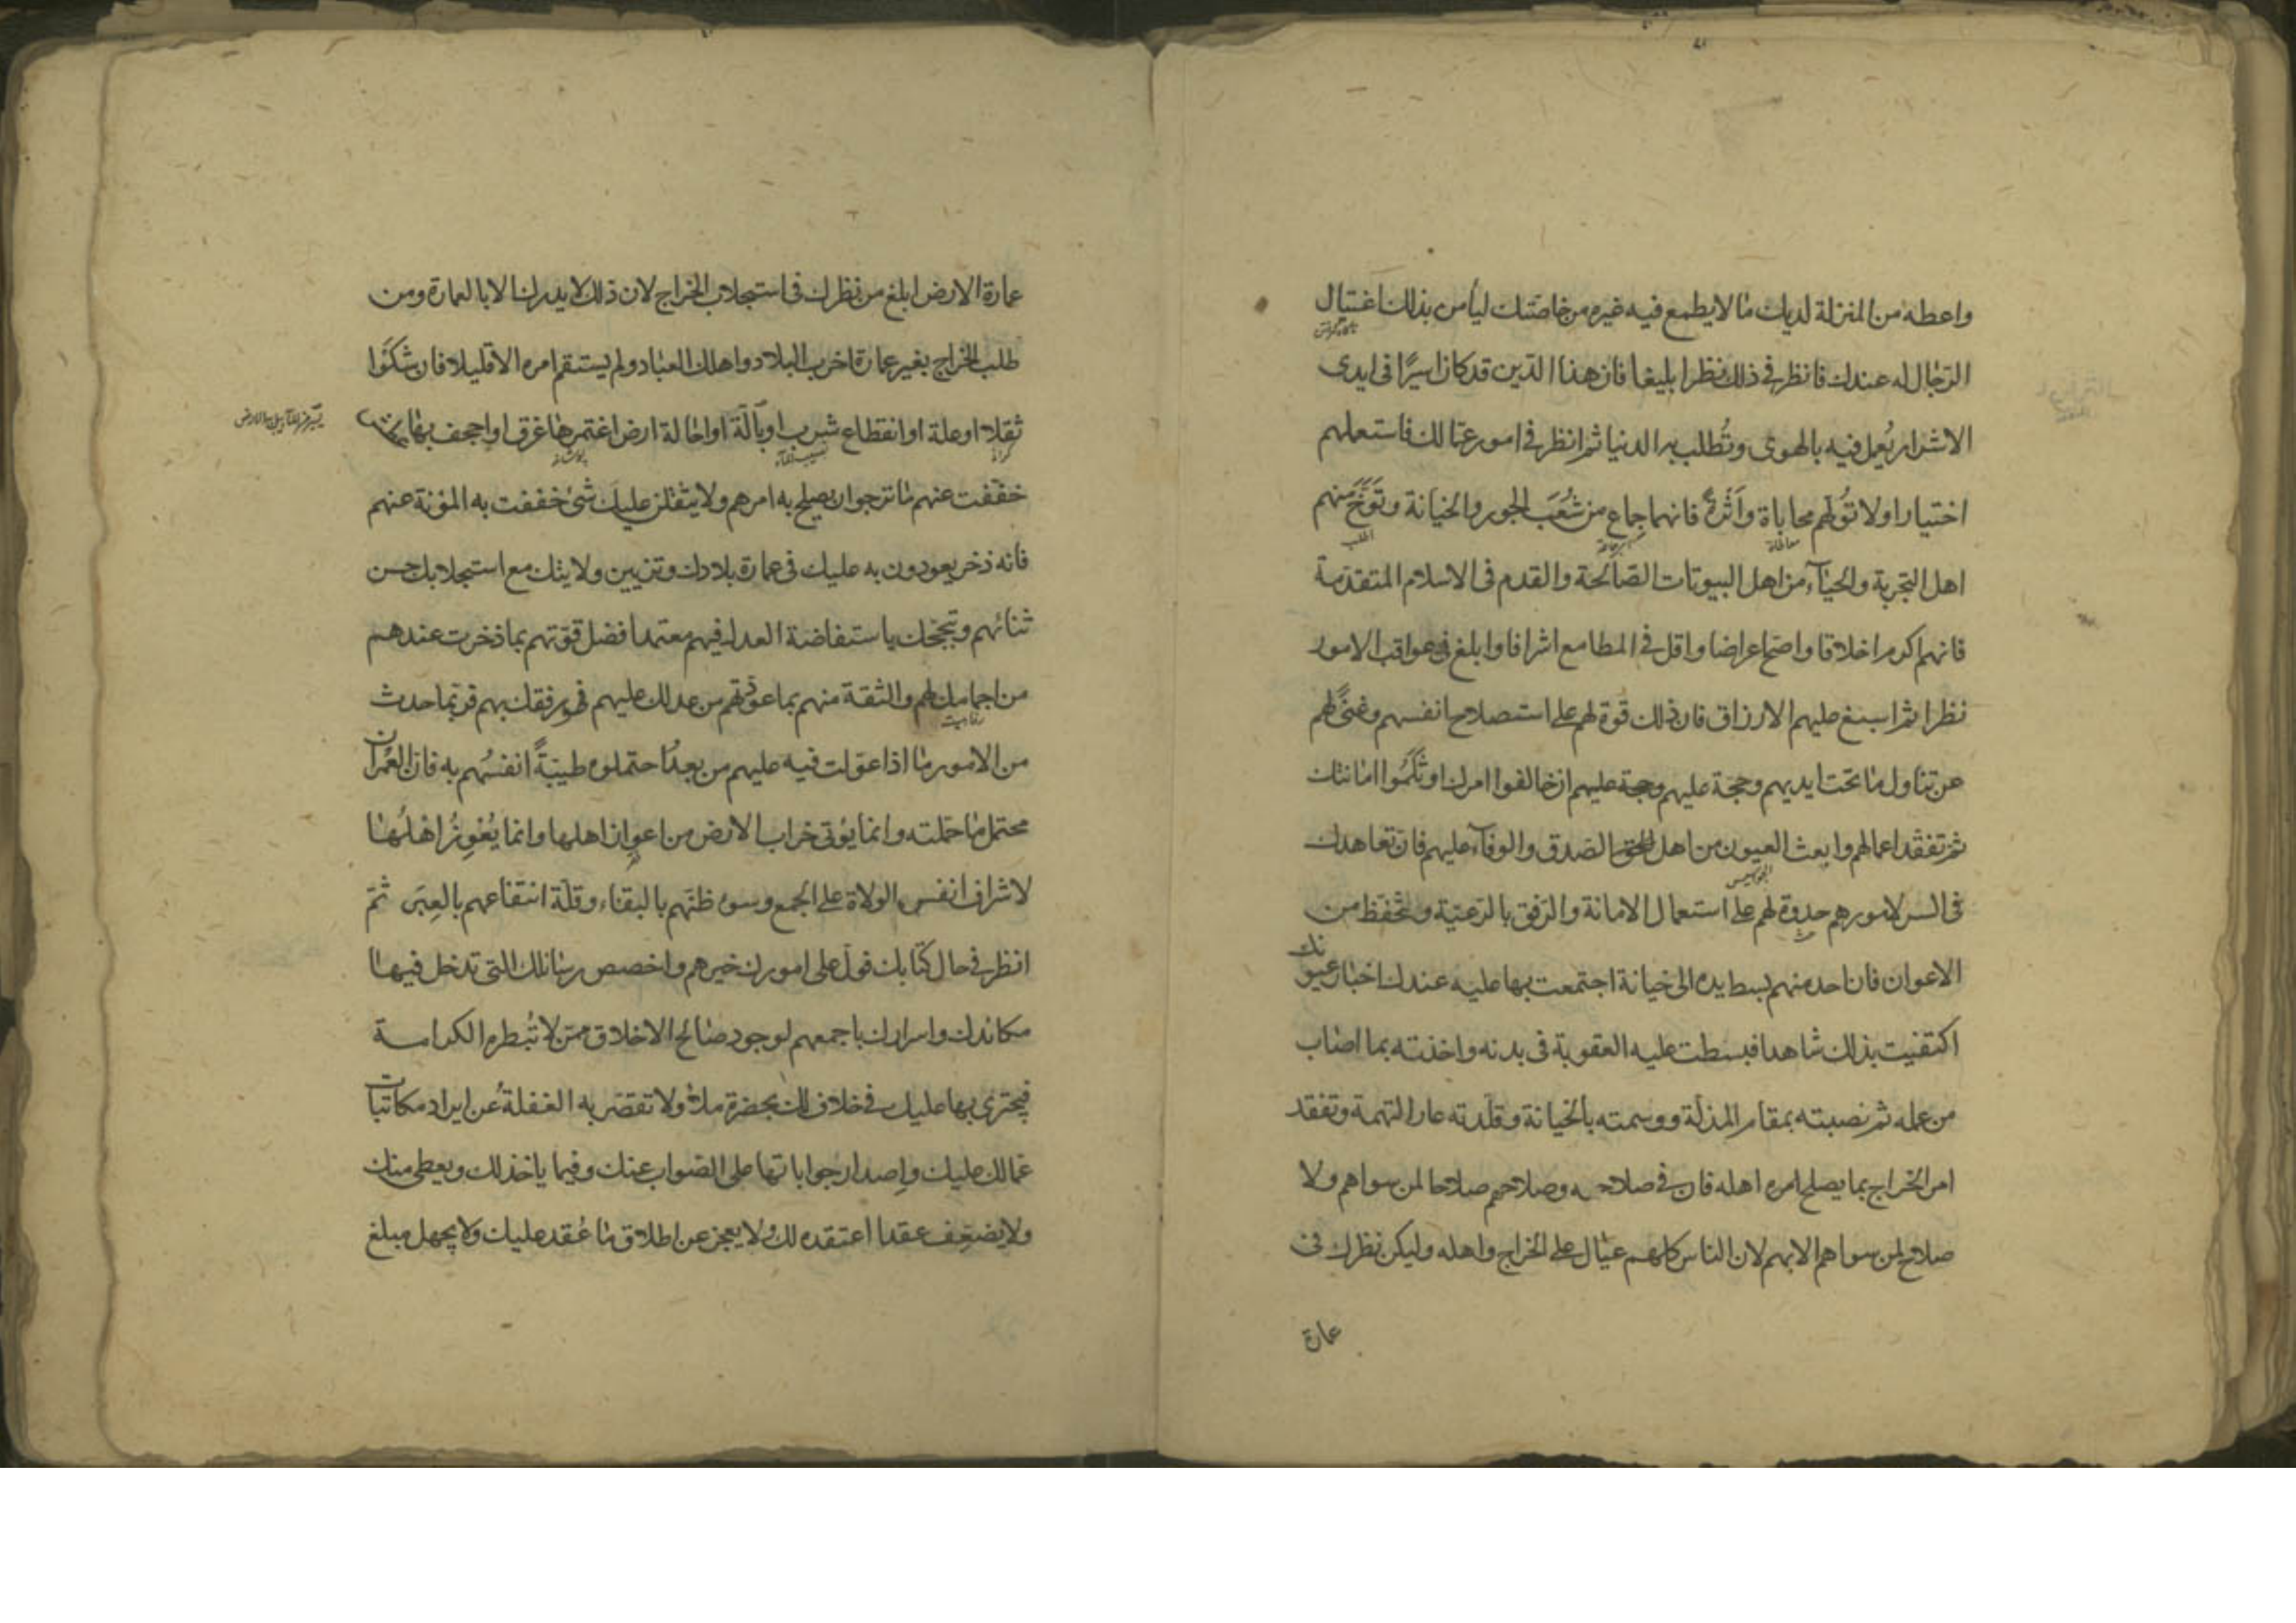 واعطه من المنزلة لديك ما لا يطمع فيه غيره من خاصتك ليأمن بذلك اغتيال
الرجال له عندك فانظر في ذلك نظرا بليغا فان هذا الدين قد كان اسيرًا فى ايدى
الاشرار يُعمل فيه بالهوى وتُطلب به الدنيا ثم انظر في امور عمالك فاستعملهم
اختيارا ولا تُولّهم محاباة واَثَرةً فانهما جِماع من شُعَب الجور والخيانة وتَوَخَّ منهم
اهل التجربة والحيآء من اهل البيوتات الصّالحة والقدم فى الاسلام المتقدمة
فانهم اكرم اخلاقا واصحّ اعراضا واقل في المطامع اشرافا وابلغ في عواقب الامور
نظرا ثم اسبغ عليهم الارزاق فان ذلك قوة لهم على استصلاح انفسهم وغنًى لهم
عن تناول ما تحت ايديهم وحجة عليهم وحجة عليهم ان خالفوا امرك او ثَلَمُوا امانتك
ثم تفقّد اعمالهم وابعث العيون من اهل الصّدق والوفآء عليهم فان تعاهدك
فى السر لامورهم حدوة لهم على استعمال الامانة والرّفق بالرّعيّة وتحفّظ من
الاعوان فان احد منهم بسط يده الى خيانة اجتمعت بها عليه عندك اخبار عيونك
اكتفيت بذلك شاهدا فبسطت عليه العقوبة فى بدنه واخذته بما اصاب
من عمله ثم نصبته بمقام المذلّة ووسمته بالخيانة وقلّدته عار التهمة وتفقد
امر الخراج بما يصلح امره اهله فان في صلاحه وصلاحهم صلاحا لمن سواهم ولا
صلاح لمن سواهم الا بهم لان الناس كلهم عيال على الخراج واهله وليكن نظرك فى
عمارة
عمارة الارض ابلغ من نظرك فى استجلاب الخراج لان ذلك لا يدرك الا بالعمارة ومن
طلب الخراج بغير عمارة اخرب البلاد واهلك العباد ولم يستقم امره الا قليلا فان شكَوا
ثقلا او علة او انقطاع شرب او بالّة او احالة ارض اغتمرها غرق او اجحف بها عطش
خفّفت عنهم ما ترجوا ان يصلح به امرهم ولا يثقلن عليك شئ خففت به المؤنة عنهم
فانه ذخر يعودون به عليك فى عمارة بلادك وتزيين ولايتك مع استجلابك حسن
ثنائهم وتبجّحك باستفاضة العدل فيهم معتمدا فضل قوّتهم بما ذخرت عندهم
من اجمامك لهم والثقة منهم بما عوّدتهم من عدلك عليهم في رفقك بهم فربّما حدث
من الامور ما اذا عوّلت فيه عليهم من بعدُ احتملوه طيبَةً انفسُهم به فان العُمران
محتمل ما حمّلته وانما يؤتى خراب الارض من اعواز اهلها وانما يُعْوِزُ اهلُها
لاشراف انفس الولاة على الجمع وسوء ظنّهم بالبقاء وقلّة انتفاعهم بالعِبَر ثمّ
انظر في حال كتّابك فولّ على امورك خيرهم واخصص رسائلك التى تدخل فيها
مكائدك واسرارك باجمعهم لوجود صالح الاخلاق ممّن لا تُبطره الكرامة
فيجترئ بها عليك في خلاف لك بحضرة ملاء ولا تقصّر به الغفلةُ عن ايراد مكاتبات
عمالك عليك واِصدار جواباتها على الصّواب عنك وفيما ياخذ لك ويعطى منك
ولا يضعّف عقدا اعتقده لك ولا يعجز عن اطلاق ما عُقد عليك ولا يجهل مبلغ